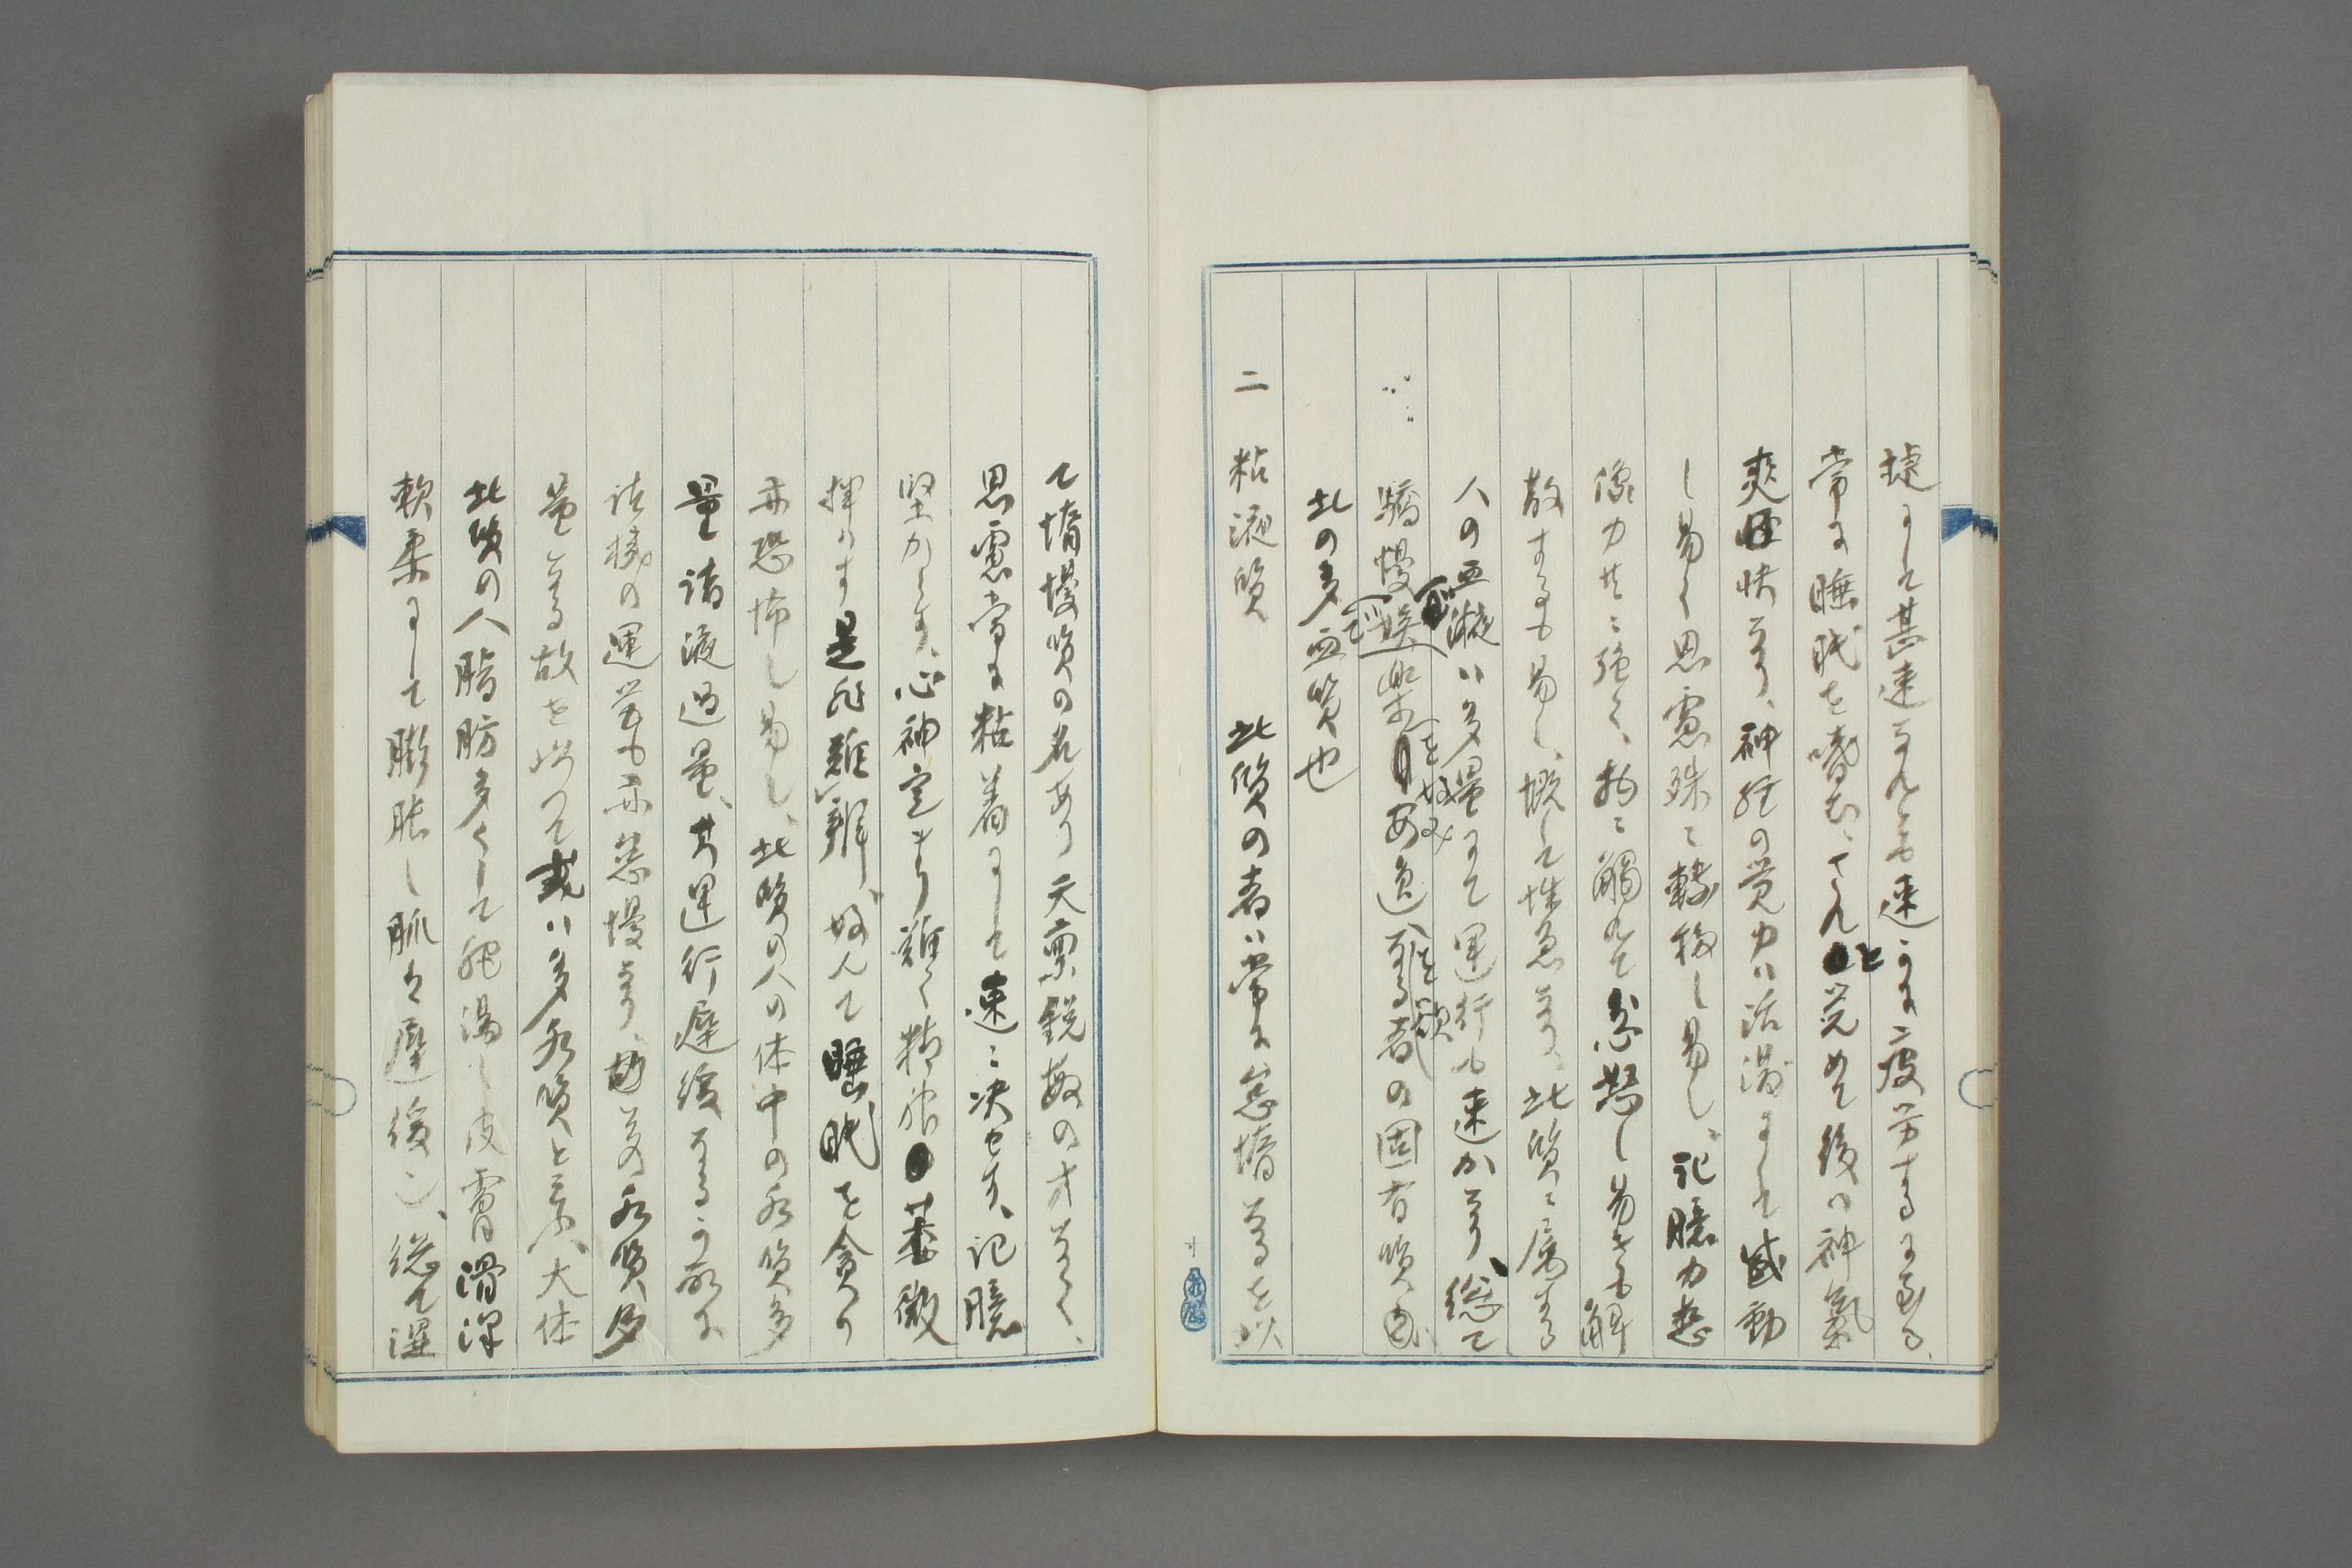 捷にして甚速なれども速かに疲労するに至る、
常に睡眠を嗜む、されと覚めて後は神氣
爽快なり、神経の覚力は活溌にして感動
し易く思慮殊に轉移し易し、記臆力想
像力共に強く、物に觸れて忿怒し易きも解
散するも易し、概して性急なり、此質に属する
人の血液は多量にて運行も速かなり、総て
驕慢娯楽を好み安逸を欲する者の固有質
此の多血質也
二 粘液質 此質の者は常に怠惰なるを以
て惰慢質の名あり天禀鋭敏の才なく、
思慮常に粘着にして速に決せす、記臆
堅からす、心神定まり難く精神萎微
揮はす是非難辨、好んて睡眠を貪り
亦恐怖し易し、此質の人の体中の水質多
量諸液過量、其運行遅緩なるか故に
諸機の運営も亦怠慢なり、故の水質多
量なる故を以て或は多水質と云ふ、大体
此質の人脂肪多くして肥満し皮膚滑澤
軟柔にして膨脹し脈々遅緩に、総て運